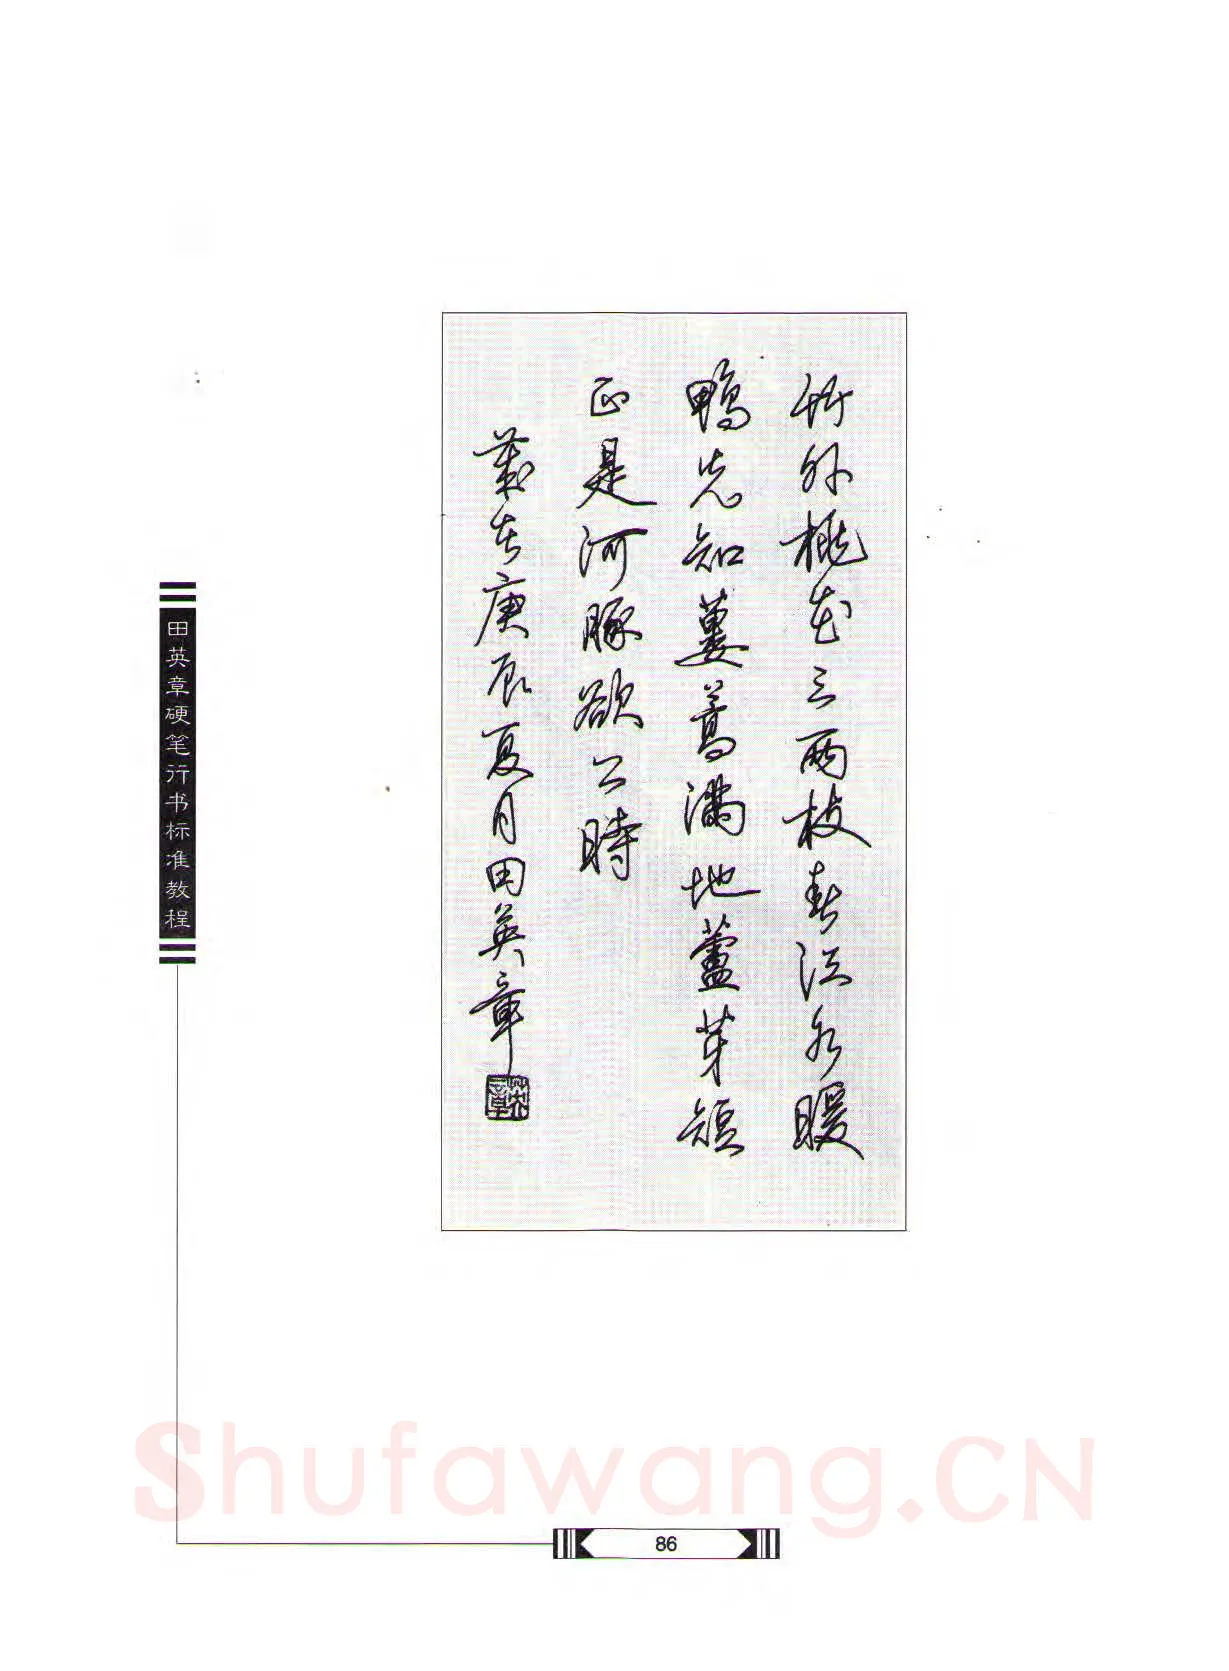 竹外桃花三兩枝春江水暖
鴨先知蔞蒿滿地蘆芽短
正是河豚欲上時
歲在庚辰夏月田英章
英章
田英章硬笔行书标准教程
Shufawang.CN
86